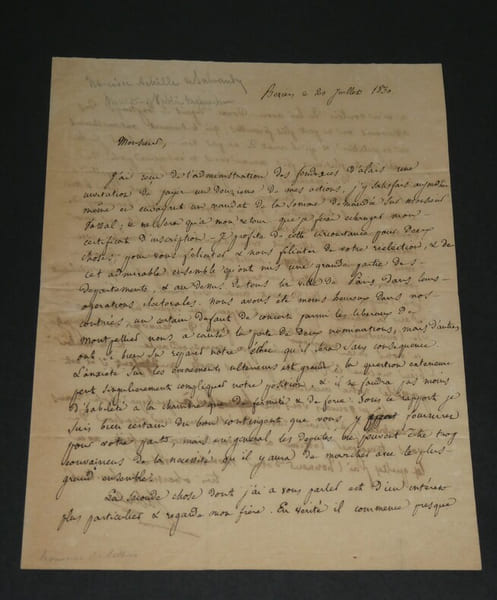 Beziers le 20 Juillet 1830.
Monsieur,
J'ai reçu de l'administration des fonderies d'alais une
invitation de payer un douzieme de mes actions, j'y satisfais aujourd'hui
même en envoyant un mandat de la somme demandée sur monsieur
ce ne sera qu'à mon retour que je ferai echanger mon
certificat d'inscription. Je profite de cette circonstance pour Deux
choses, pour vous feliciter & nous feliciter de votre reelection, & de
cet admirable ensemble qu'ont mis une grande partie des
Departements, & au dessus de tous la ville de Paris, Dans leurs
operations electorales. nous avons été moins heureux Dans nos
contrées, un certain défaut de concert parmi les liberaux de
Montpellier nous a causé la perte de Deux nominations, mais d'autres
ont si bien su reparer notre échec qu'il sera sans consequence.
L'anxieté sur les évenements ulterieurs est grande, la question exterieure
peut singulierement compliquer votre position, & il ne faudra pas moins
d'habileté à la chambre que de fermeté & de force. Sous ce rapport je
suis bien certain du bon contingent que vous y fournirez
pour votre part, mais en general, les deputés ne peuvent être trop
convaincus de la necessité qu'il y aura de marcher avec le plus
grand ensemble.
La seconde chose dont j'ai à vous parler est d'un intérêt
plus particulier & regarde mon frère. En vérité il commence presque